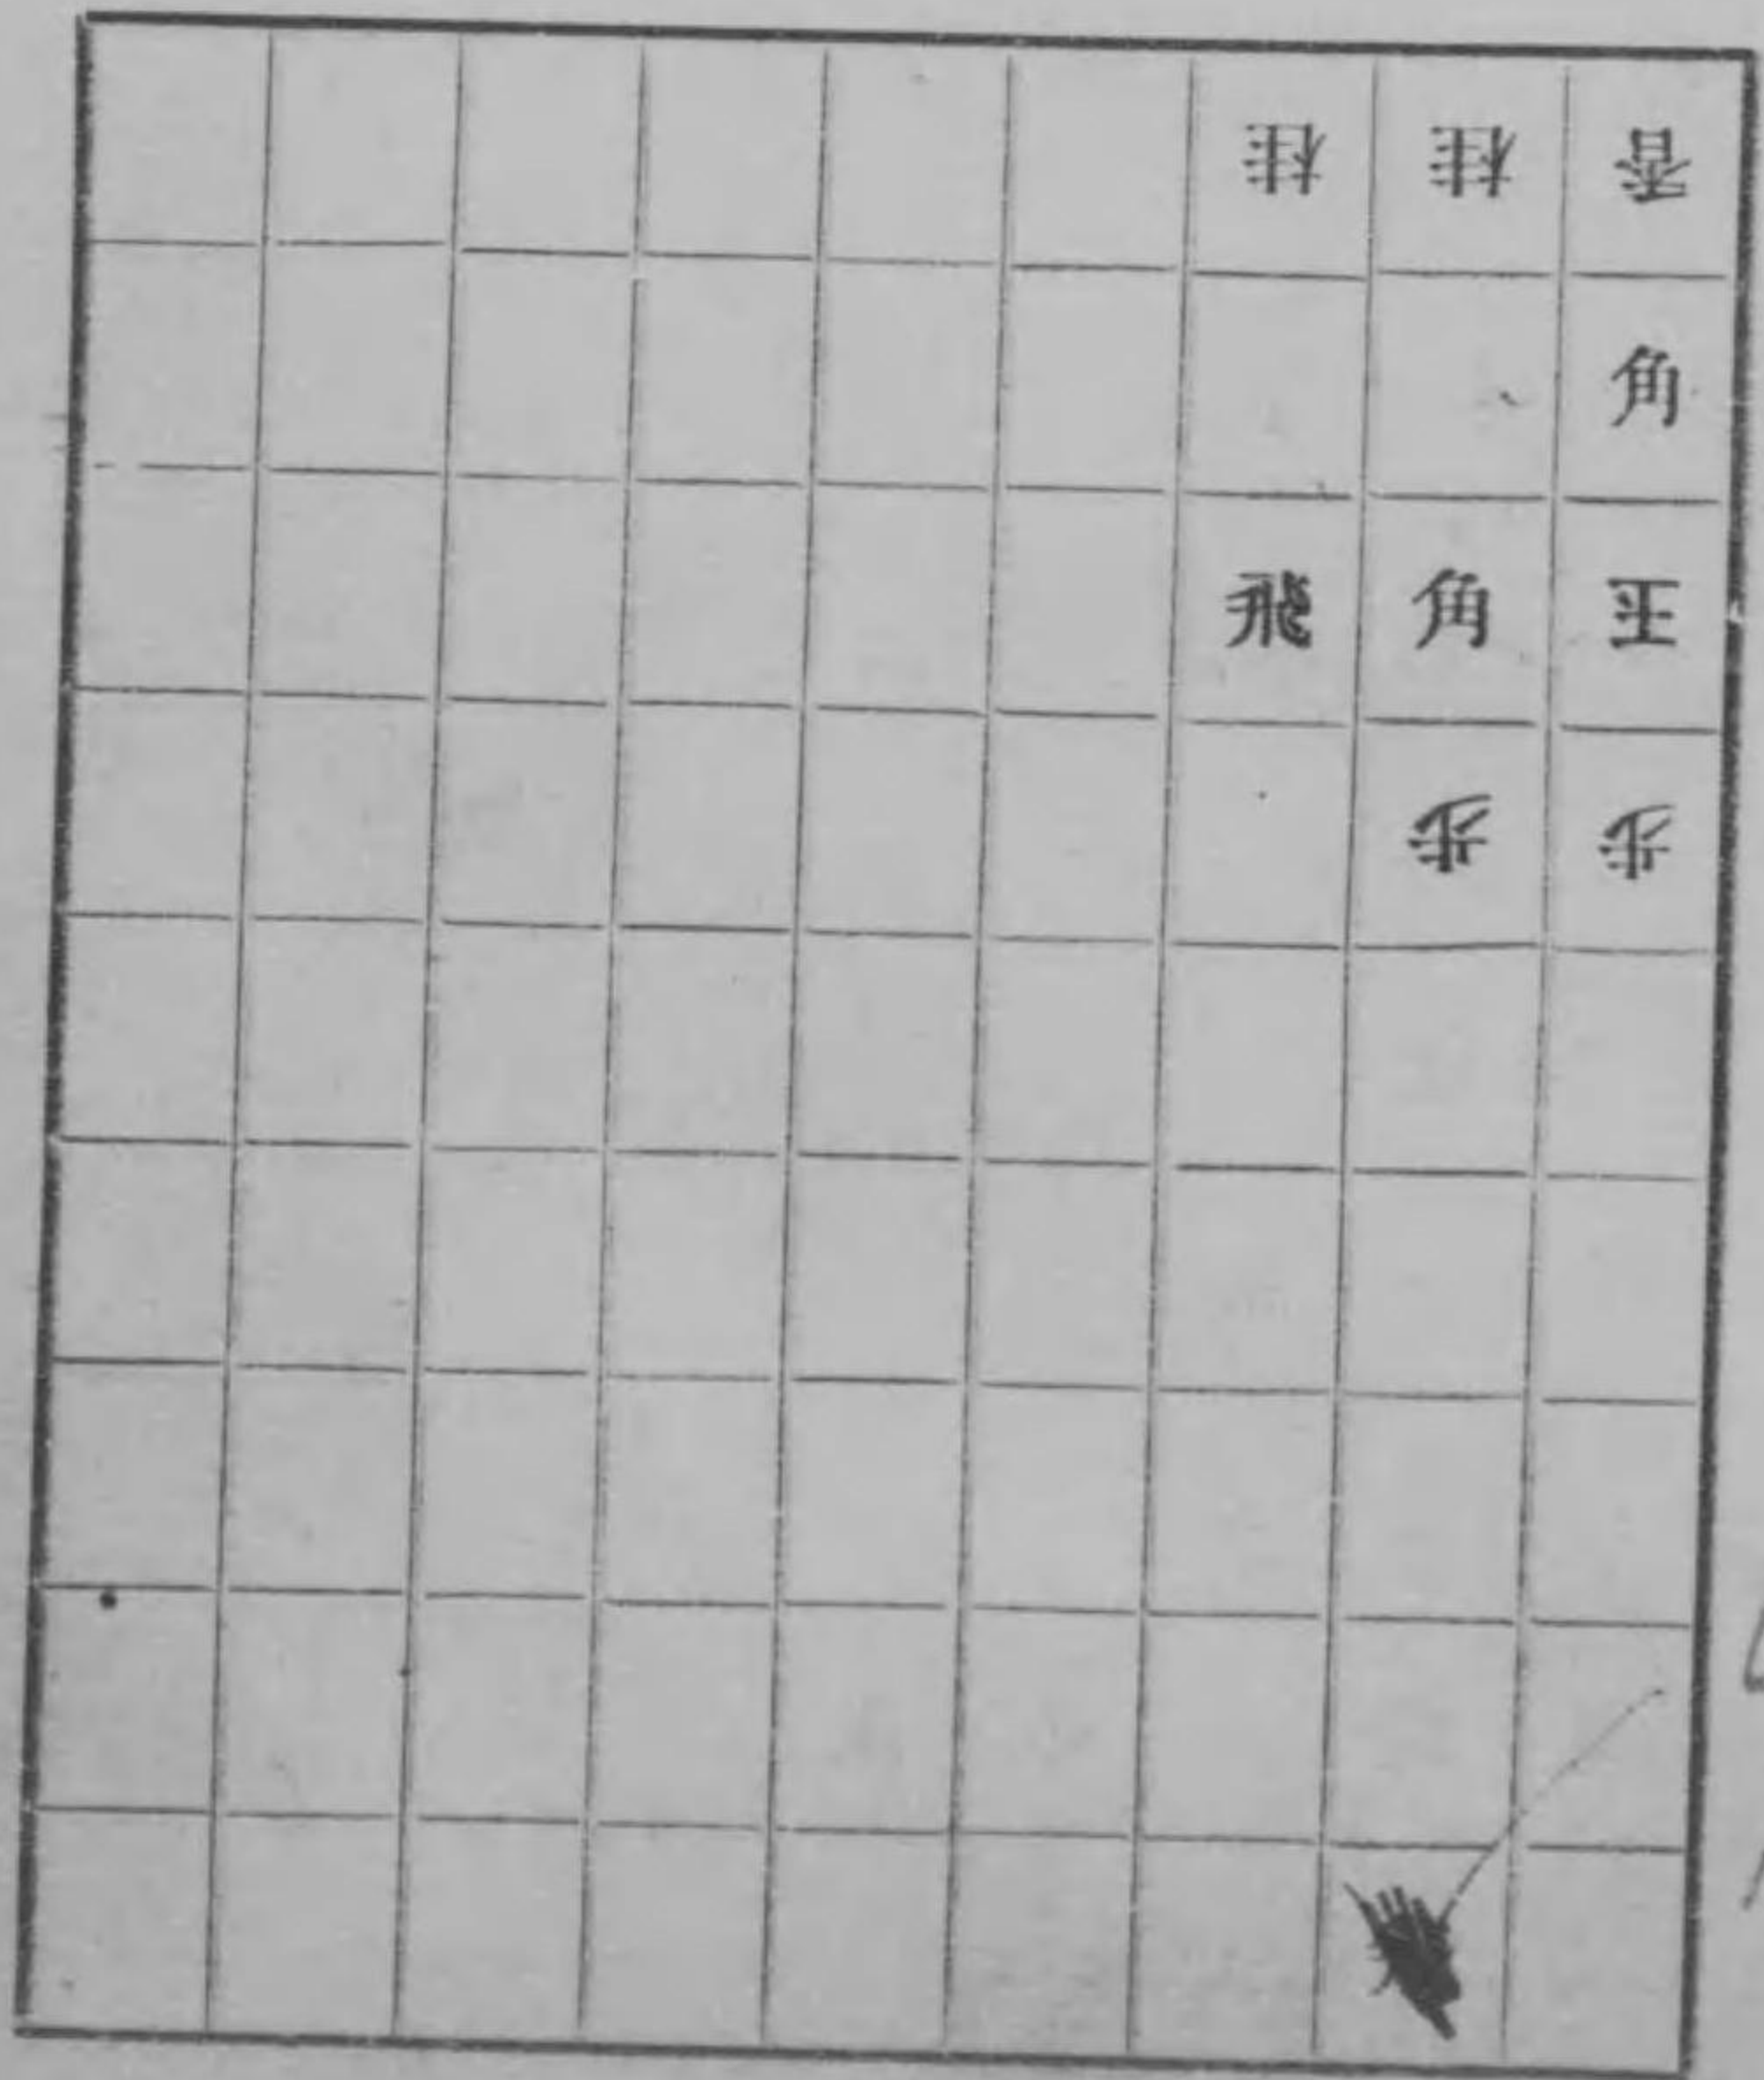 桂 桂 香
角
飛 角 王
歩 歩